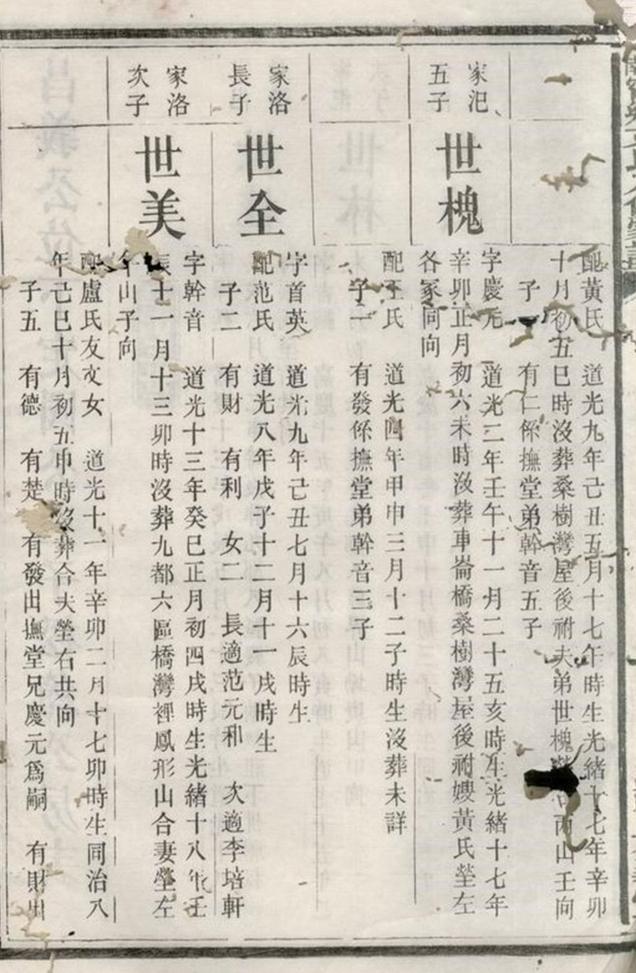 配黃氏　道光九年己丑五月十七年時生光緒十七年辛卯
十月初五巳時沒葬桑樹灣屋後祔夫弟世槐丙山壬向
子一　有仁係撫堂弟幹音五子
家汜
五子
世槐
字慶元　道光二年壬午十一月二十五亥時生光緒十七年
辛卯正月初六未時沒葬車崙橋桑樹灣屋後祔嫂黃氏塋左
各冢同向
配王氏　道光四年甲申三月十二子時生沒葬未詳
子一　有發係撫堂弟幹音三子
家洛
長子
世全
字首英　道光九年己丑七月十六辰時生
配范氏　道光八年戊子十二月十一戌時生
子二　有財　有利　女二　長適范元和　次適李培軒
家洛
次子
世美
字幹音　道光十三年癸巳正月初四戌時生光緒十八年壬
辰十一月十三卯時沒葬九都六區橋灣裡鳳形山合妻塋左
午山子向
配盧氏友文女　道光十一年辛卯二月十七卯時生同治八
年己巳十月初五申時沒葬合夫塋右共向
子五　有德　有楚　有發出撫堂兄慶元爲嗣　有財出